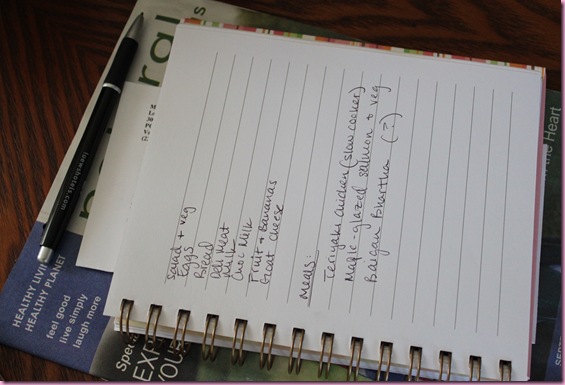 Salad + veg
Eggs
Bread
Deli Meat
Milk
Choc Milk
Fruit + Bananas
Goat Cheese
Meals:
Teriyaki Chicken (slow cooker)
Maple-glazed salmon + veg
Baigan Bhartha (?)
loewshotels.com
HEALTHY LIVING
HEALTHY PLANET
feel good
live simply
laugh more
the Heart